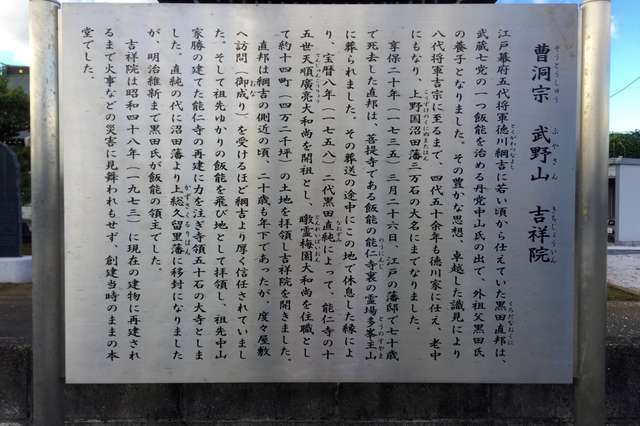 曹洞宗 武野山 吉祥院
そうとうしゅう ぶやさん きちしょういん
江戸幕府五代将軍徳川綱吉に若い頃から仕えていた黒田直邦は、
とくがわつなよし くろだなおくに
武蔵七党の一つ飯能を治める丹党中山氏の出で、外祖父黒田氏
の養子となりました。その豊かな思想、卓越した識見により
八代将軍吉宗に至るまで、四代五十余年も徳川家に仕え、老中
にもなり、上野国沼田藩三万石の大名にまでなりました。
こうずけのくにぬまたはん
享保二十年(一七三五)三月二十六日、江戸の藩邸で七十歳
で死去した直邦は、菩提寺である飯能の能仁寺裏の霊場多峯主山
のうにんじ とうのすやま
に葬られました。その葬送の途中にこの地で休息した縁によ
り、宝暦八年(一七五八)二代黒田直純によって、能仁寺の十
なおずみ
五世天順廣亮大和尚を開祖とし、暾霊梅園大和尚を住職とし
て約十四町(四万二千坪)の土地を拝領し吉祥院を開きました。
直邦は綱吉の側近の頃、二十歳も年下であったが、度々屋敷
へ訪問(御成り)を受けるほど綱吉より厚く信任されていまし
おなり
た。そして祖先ゆかりの飯能を飛び地として拝領し、祖先中山
家勝の建てた能仁寺の再建に力を注ぎ寺領五十石の大寺としま
した。直純の代に沼田藩より上総久留里藩に移封になりました
かずさくるりはん
が、明治維新まで黒田氏が飯能の領主でした。
吉祥院は昭和四十八年(一九七三)に現在の建物に再建され
るまで火事などの災害に見舞われもせず、創建当時のままの本
堂でした。